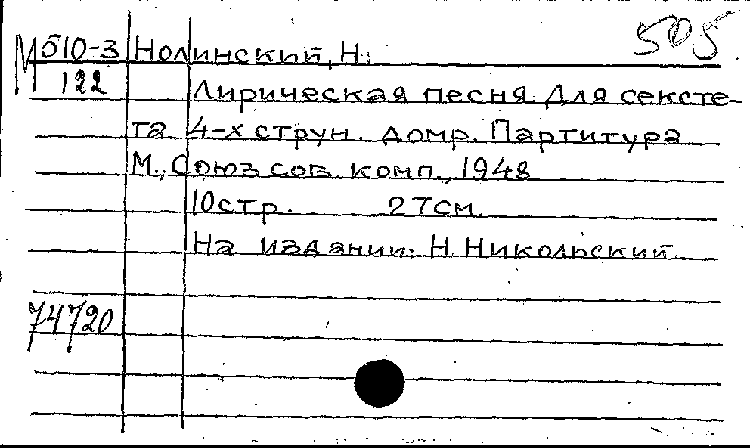 505
М 510-3 Нолинский, Н.
122
Лирическая песня. Для сексте-
та 4-х струн. домр. Партитура
М., Союз сов. комп., 1948
10стр. 27см.
На издании: Н. Никольский.
74720